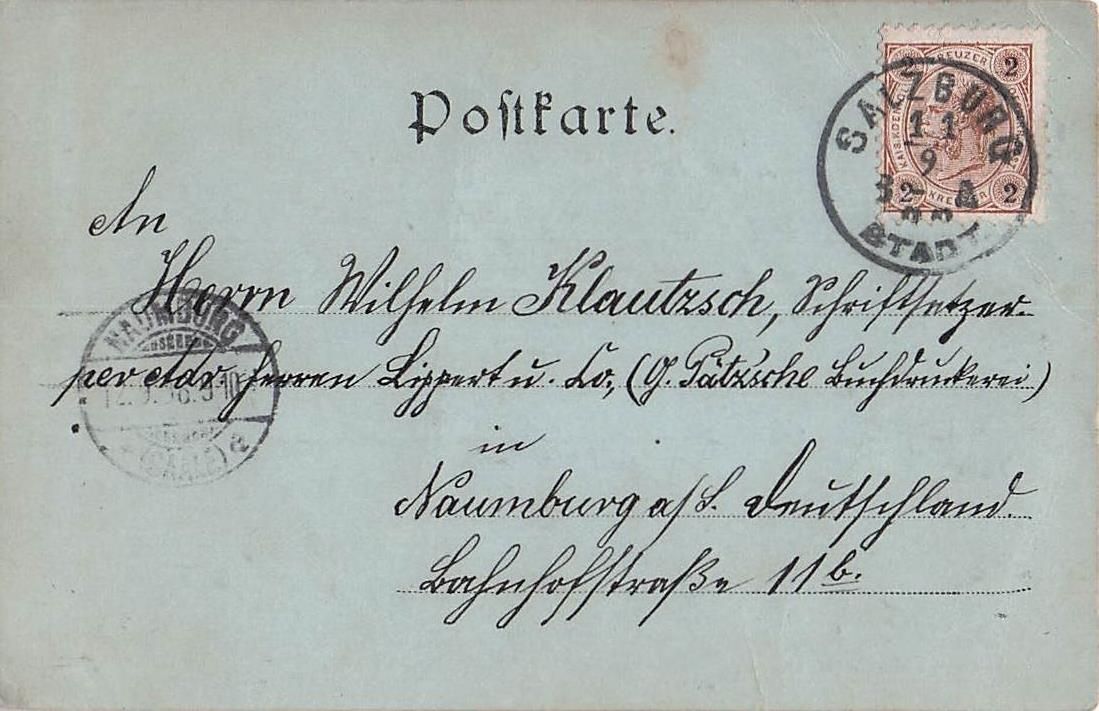 Postkarte.
KREUZER
2
2
2
KREUZER
SALZBURG
11
9
98
STADT
An
Herrn Wilhelm Klautzsch, Schriftsetzer.
per Adr. Herren Lippert u. Co, (G. Pätz'sche Buchdruckerei)
in
Naumburg a/S. Deutschland.
Bahnhofstraße 11b.
NAUMBURG
(SAALE)